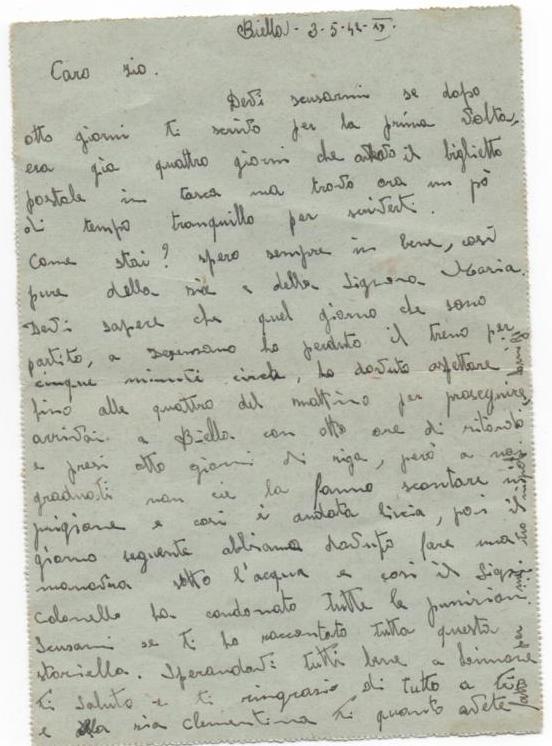 Biella - 3-5-42-
Caro zio.
Devi scusarmi se dopo
otto giorni ti scrivo per la prima volta,
era già quattro giorni che avevo il biglietto
postale in tasca ma trovo ora un pò
di tempo tranquillo per scriverti.
Come stai? spero sempre in bene, così
pure della zia e della Signora Maria.
Devi sapere che quel giorno che sono
partito, a Desenzano ho perduto il treno per
cinque minuti circa, ho dovuto aspettare
fino alle quattro del mattino per proseguire,
arrivai a Biella con otto ore di ritardo
e presi otto giorni di riga, però a noi
graduati non ce la fanno scontare in
prigione e così è andata liscia, poi il
giorno seguente abbiamo dovuto fare una
manovra sotto l'acqua e così il Sign.
Colonello ha condonato tutte le punizioni
Scusami se ti ho raccontato tutta questa
storiella. Sperandovi tutti bene a Limone
ti saluto e ti ringrazio di tutto a
e alla zia Clementina ti quanto avete